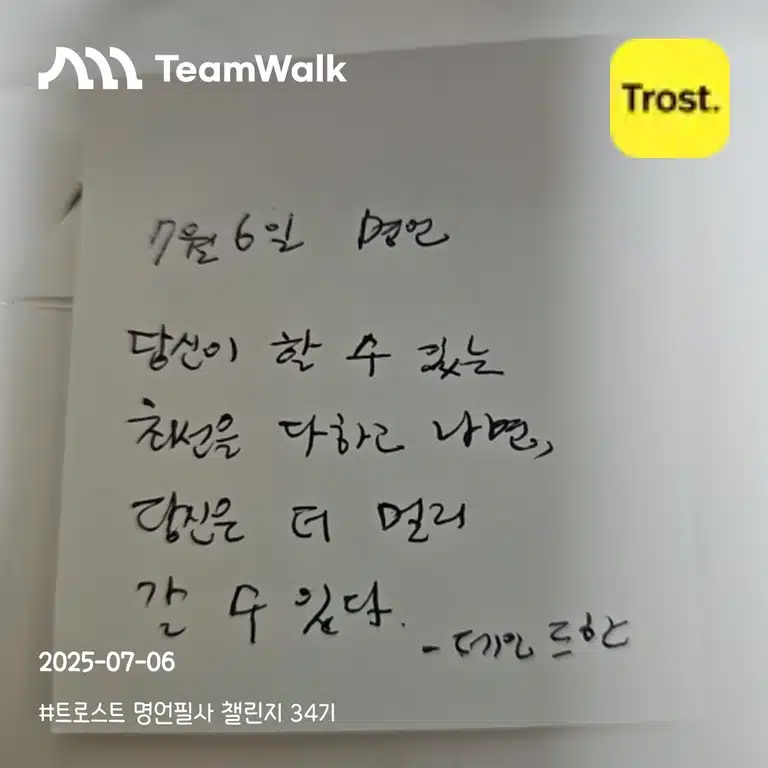 TeamWalk
Trost.
7월 6일 명언
당신이 할 수 있는
최선을 다하고 나면,
당신은 더 멀리
갈 수 있다.
- 데인 드한
2025-07-06
#트로스트 명언필사 챌린지 34기